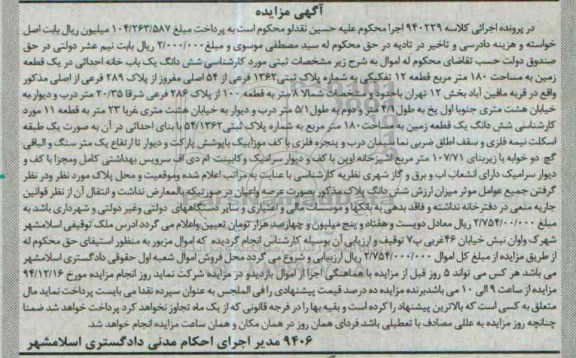 آگهی مزایده
در پرونده اجرائی کلاسه ۹۴۰۲۲۹ اجرا محکوم علیه حسین نقدلو محکوم است به پرداخت مبلغ ۱۰۴/۲۶۳/۵۸۷ میلیون ریال بابت اصل
خواسته و هزینه دادرسی و تاخیر در تادیه در حق محکوم له سید مصطفی موسوی و مبلغ ۲/۰۰۰/۰۰۰ ریال بابت نیم عشر دولتی در حق
صندوق دولت حسب تقاضای محکوم له اموال به شرح زیر مشخصات ثبتی مورد کارشناسی شش دانگ یک باب خانه احداثی در یک قطعه
زمین به مساحت ۱۸۰ متر مربع قطعه ۱۲ تفکیکی به شماره پلاک ثبتی ۱۳۶۲ فرعی از ۵۴ اصلی مفروز از پلاک ۲۸۹ فرعی از اصلی مذکور
واقع در قریه مافین آباد بخش ۱۲ تهران باحدود و مشخصات شمالا ۸ متر به قطعه ۱۰۰ از پلاک ۲۸۶ فرعی شرقا ۲۰/۳۵ متر درب و دیوار به
خیابان هشت متری جنوبا اول پخ به طول ۲/۸ متر و دوم به طول ۵/۱ متر درب و دیوار به خیابان هشت متری غربا ۲۳ متر به قطعه ۱۱ مورد
کارشناسی شش دانگ یک قطعه زمین به مساحت ۱۸۰ متر مربع به شماره پلاک ثبتی ۵۴/۱۳۶۲ با بنای احداثی در آن به صورت یک طبقه
اسکلت نیمه فلزی و سقف اطاق ضربی نما سیمان درب و پنجره فلزی با کف موزاییک باپوشش پارکت و دیوار تا ارتفاع یک متر سنگ و الباقی
گچ دو خوابه با زیربنای ۱۰۷/۷۱ متر مربع آشپزخانه اوپن با کف و دیوار سرامیک و کابینت ام دی اف سرویس بهداشتی کامل ومجزا با کف و
دیوار سرامیک دارای انشعاب آب و برق و گاز شهری نظریه کارشناسی با عنایت به مراتب اعلام شده وموقعیت و محل پلاک مورد نظر ودر نظر
گرفتن جمیع عوامل موثر میزان ارزش شش دانگ پلاک مذکور بصورت عرصه واعیان در صورتیکه بالمعارض نداشت و انتقال آن از نظر قوانین
جاریه منعی در دفترخانه نداشته و فاقد بدهی به بانکها و موسسات مالی و اعتباری و سایر دستگاههای دولتی وغیر دولتی و شهرداری باشد به
مبلغ ۲/۷۵۴/۰۰۰/۰۰۰ ریال معادل دویست و هفتاد و پنج میلیون و چهارصد هزار تومان تعیین واعلام می گردد ادرس ملک توقیفی اسلامشهر
شهرک واوان نبش خیابان ۴۶غربی پ۷ توقیف و ارزیابی آن بوسیله کارشناس انجام گردیده که اموال مزبور به منظور استیفای حق محکوم له
از طریق مزایده از مبلغ کل اموال ۲/۷۵۴/۰۰۰/۰۰۰ ریال ارزیابی و شروع می گردد محل فروش اموال شعبه اول حقوقی دادگستری اسلامشهر
می باشد هر کس می تواند ۵ روز قبل از مزایده با هماهنگی اجرا از اموال بازدید و در مزایده شرکت نماید روز انجام مزایده مورخ ۹۴/۱۲/۱۶
مزایده از ساعت ۹ الی ۱۰ می باشدبرنده مزایده ده درصد قیمت پیشنهادی را فی المجلس به عنوان سپرده نقدا می بایست پرداخت نماید مال
متعلق به کسی است که بالاترین پیشنهاد را کرده است و بقیه بها را در فرجه قانونی که از یک ماه تجاوز نخواهد کرد پرداخت خواهد شد ضمنا
چنانچه روز مزایده به عللی مصادف با تعطیلی باشد فردای همان روز در همان مکان و همان ساعت مزایده انجام خواهد شد.
۹۴۰۶ مدیر اجرای احکام مدنی دادگستری اسلامشهر